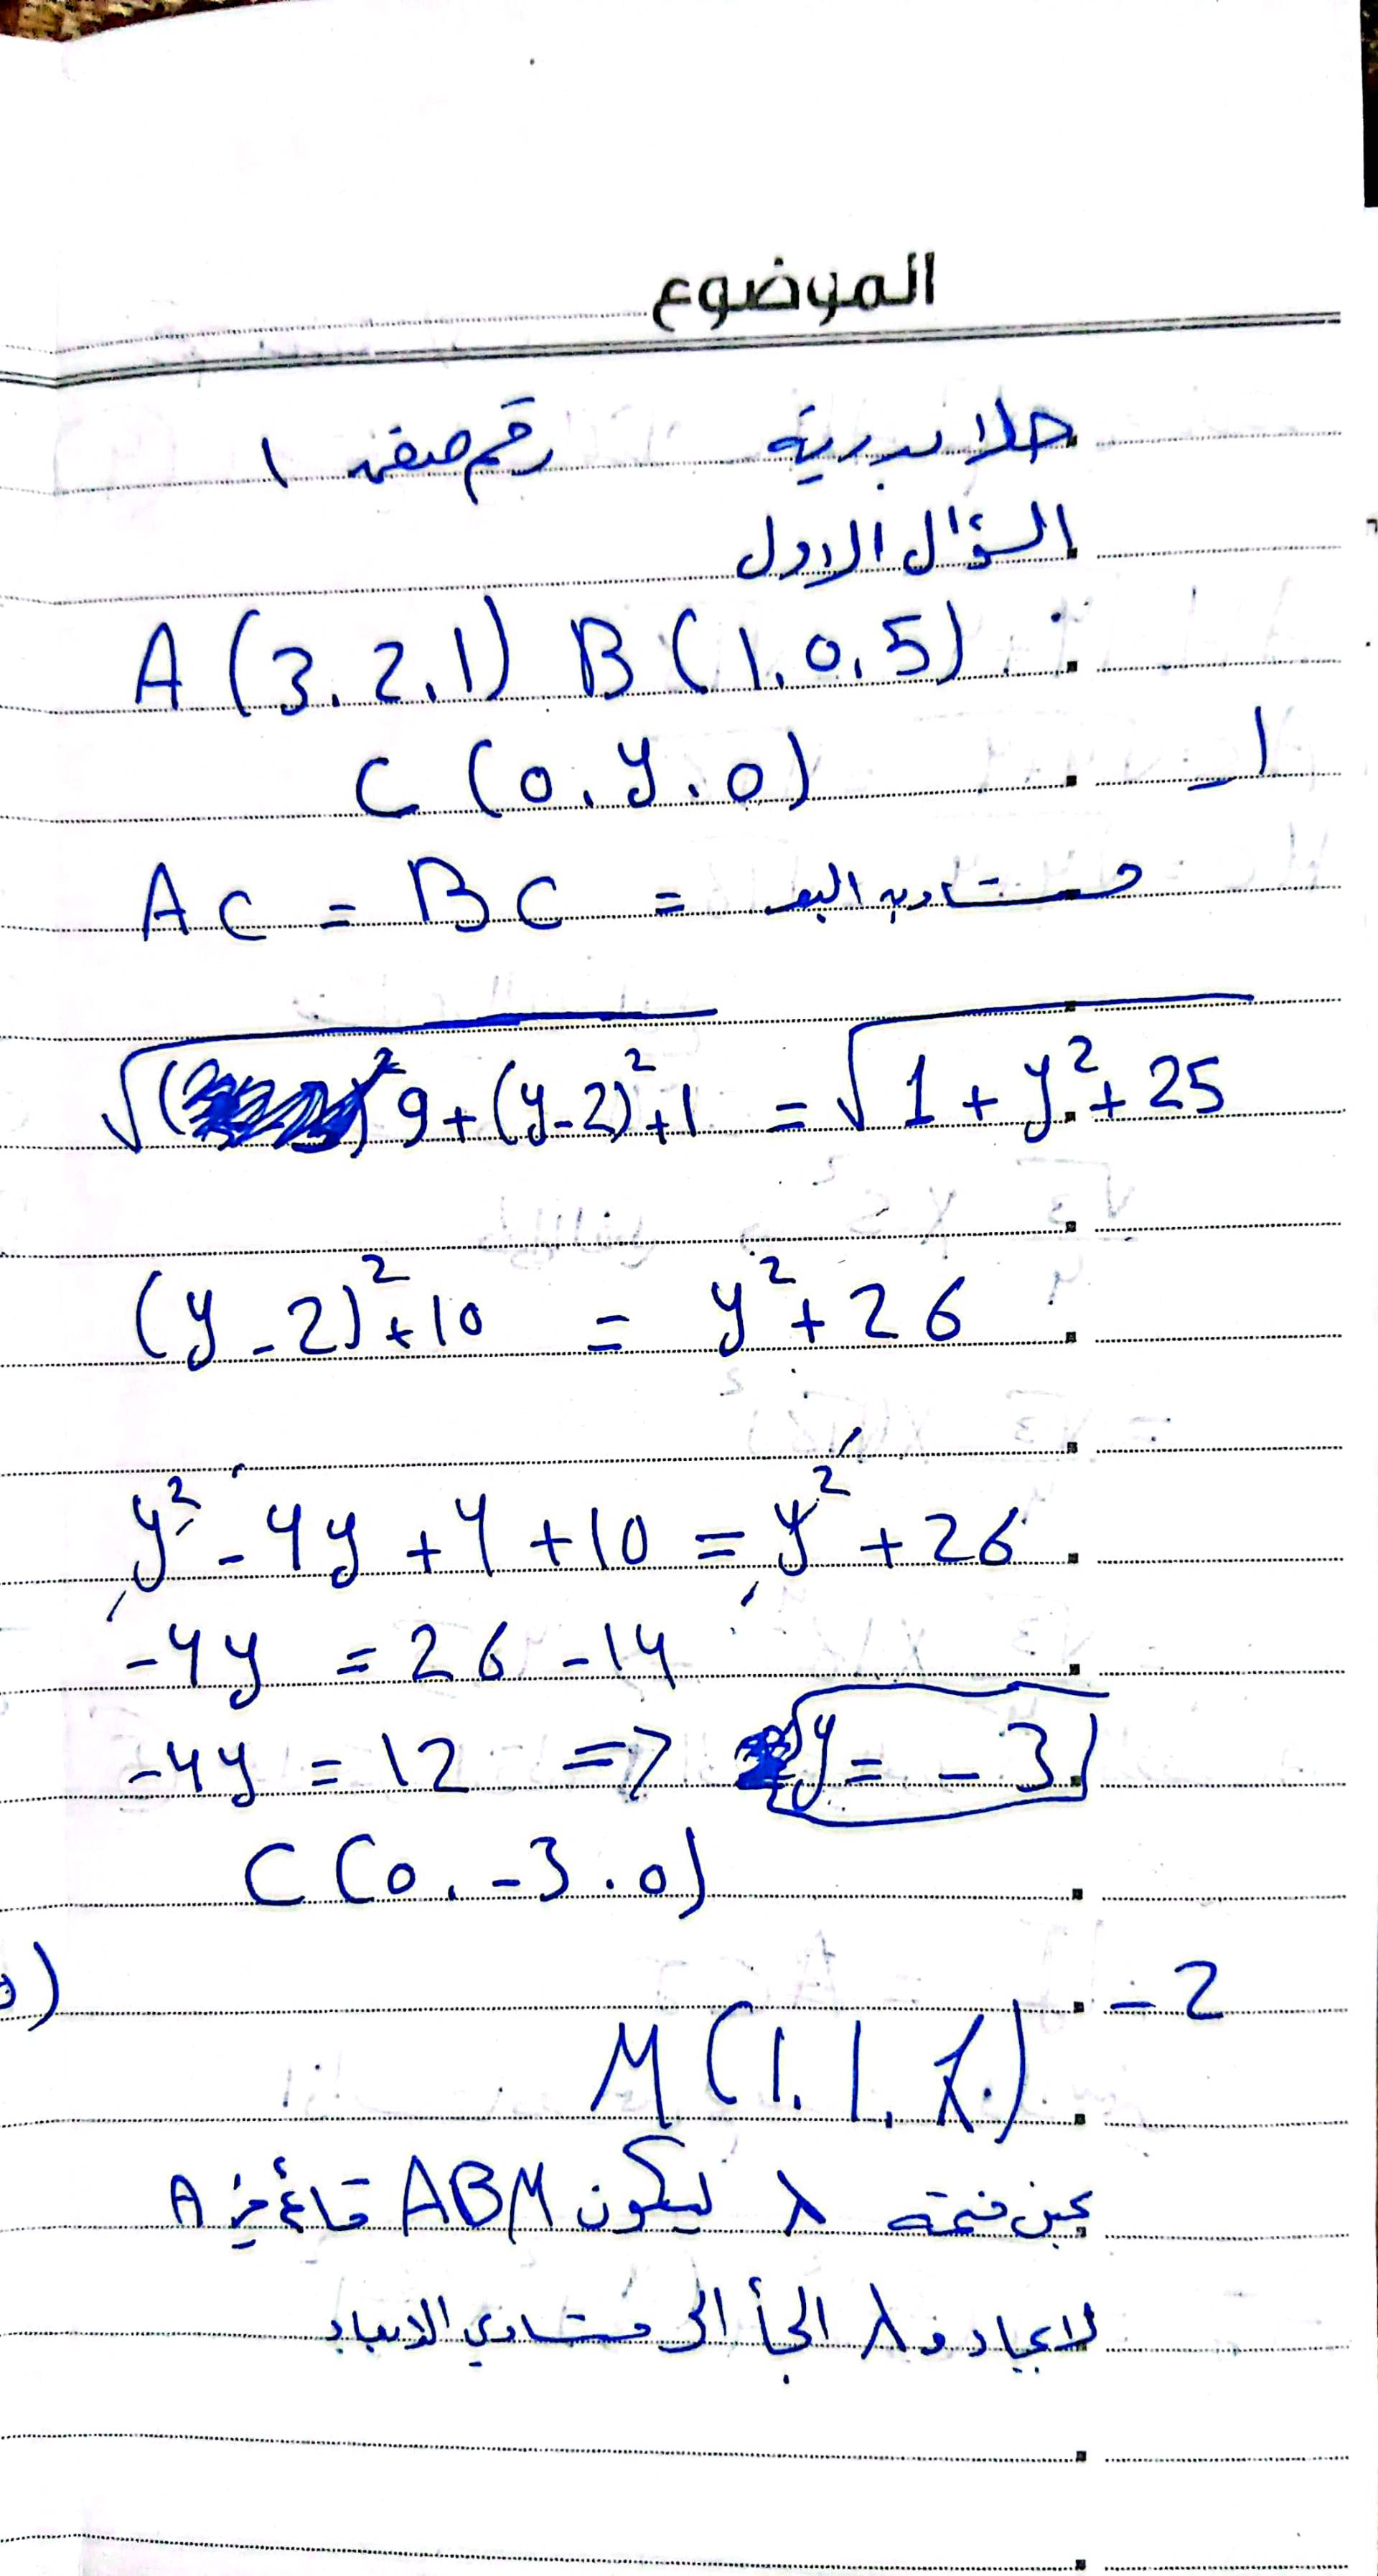 الموضوع
حلا بدرية رقم صفحة ١
السؤال الاول
A (3, 2, 1) B (1, 0, 5)
1- C (0, y, 0)
AC = BC = متساوية البعد
√9 + (y-2)² + 1 = √1 + y² + 25
(y - 2)² + 10 = y² + 26
y² - 4y + 4 + 10 = y² + 26
-4y = 26 - 14
-4y = 12 => y = -3
C (0, -3, 0)
2-
M (1, 1, λ)
عين قيمة λ ليكون ABM قائم في A
لايجاد λ الجأ الى متساوي الابعاد